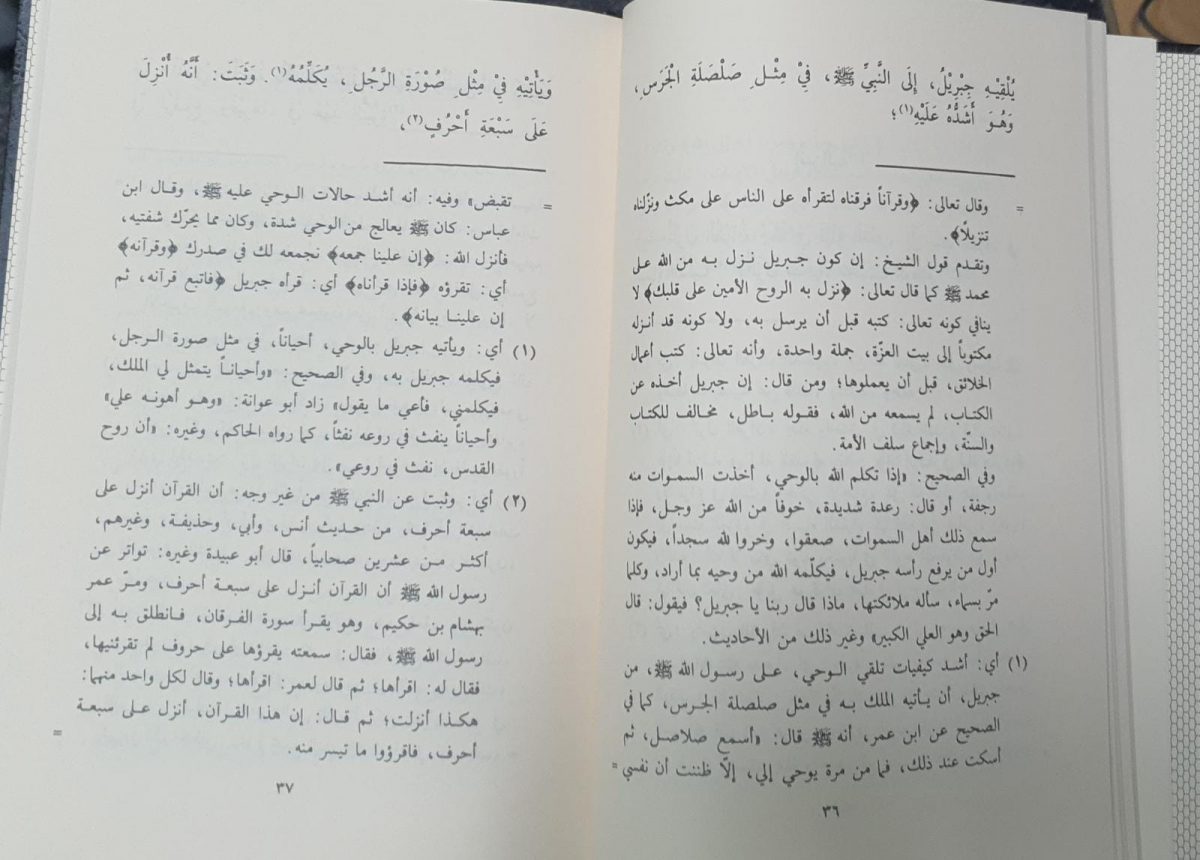 يُلْقِيْهِ جِبْرِيْلُ، إِلَى النَّبِيِّ ﷺ، فِيْ مِثْلِ صَلْصَلَةِ الْجَرَسِ،
وَهُوَ أَشَدُّهُ عَلَيْهِ(١)؛
= وقال تعالى: ﴿وقرآناً فرقناه لتقرأه على الناس على مكث ونزّلناه
تنزيلاً﴾.
وتقدم قول الشيخ: إن كون جبريل نزل به من الله على
محمد ﷺ كما قال تعالى: ﴿نزل به الروح الأمين على قلبك﴾ لا
ينافي كونه تعالى: كتبه قبل أن يرسل به، ولا كونه قد أنزله
مكتوباً إلى بيت العزّة، جملة واحدة، وأنه تعالى: كتب أعمال
الخلائق، قبل أن يعملوها؛ ومن قال: إن جبريل أخذه عن
الكتاب، لم يسمعه من الله، فقوله باطل، مخالف للكتاب
والسنّة، وإجماع سلف الأمة.
وفي الصحيح: «إذا تكلم الله بالوحي، أخذت السموات منه
رجفة، أو قال: رعدة شديدة، خوفاً من الله عز وجل، فإذا
سمع ذلك أهل السموات، صعقوا، وخروا لله سجداً، فيكون
أول من يرفع رأسه جبريل، فيكلّمه الله من وحيه بما أراد، وكلما
مرّ بسماء، سأله ملائكتها، ماذا قال ربنا يا جبريل؟ فيقول: قال
الحق وهو العلي الكبير» وغير ذلك من الأحاديث.
(١) أي: أشد كيفيات تلقي الوحي، على رسول الله ﷺ، من
جبريل، أن يأتيه الملك به في مثل صلصلة الجرس، كما في
الصحيح عن ابن عمر، أنه ﷺ قال: «أسمع صلاصل، ثم
أسكت عند ذلك، فما من مرة يوحي إلي، إلّا ظننت أن نفسي =
٣٦
وَيَأْتِيْهِ فِيْ مِثْلِ صُوْرَةِ الرَّجُلِ، يُكَلِّمُهُ(١). وَثَبَتَ: أَنَّهُ أُنْزِلَ
عَلَى سَبْعَةِ أَحْرُفٍ(٢)،
= تقبض» وفيه: أنه أشد حالات الوحي عليه ﷺ، وقال ابن
عباس: كان ﷺ يعالج من الوحي شدة، وكان مما يحرّك شفتيه،
فأنزل الله: ﴿إن علينا جمعه﴾ نجمعه لك في صدرك ﴿وقرآنه﴾
أي: تقرؤه ﴿فإذا قرأناه﴾ أي: قرأه جبريل ﴿فاتبع قرآنه، ثم
إن علينا بيانه﴾.
(١) أي: ويأتيه جبريل بالوحي، أحياناً، في مثل صورة الرجل،
فيكلمه جبريل به، وفي الصحيح: «وأحياناً يتمثل لي الملك،
فيكلمني، فأعي ما يقول» زاد أبو عوانة: «وهو أهونه علي»
وأحياناً ينفث في روعه نفثاً، كما رواه الحاكم، وغيره: «أن روح
القدس، نفث في روعي».
(٢) أي: وثبت عن النبي ﷺ من غير وجه: أن القرآن أنزل على
سبعة أحرف، من حديث أنس، وأبي، وحذيفة، وغيرهم،
أكثر من عشرين صحابياً، قال أبو عبيدة وغيره: تواتر عن
رسول الله ﷺ أن القرآن أنزل على سبعة أحرف، ومرّ عمر
بهشام بن حكيم، وهو يقرأ سورة الفرقان، فانطلق به إلى
رسول الله ﷺ، فقال: سمعته يقرؤها على حروف لم تقرئنيها،
فقال له: اقرأها؛ ثم قال لعمر: اقرأها؛ وقال لكل واحد منهما:
هكذا أنزلت؛ ثم قال: إن هذا القرآن، أنزل على سبعة
أحرف، فاقرؤوا ما تيسر منه. =
٣٧